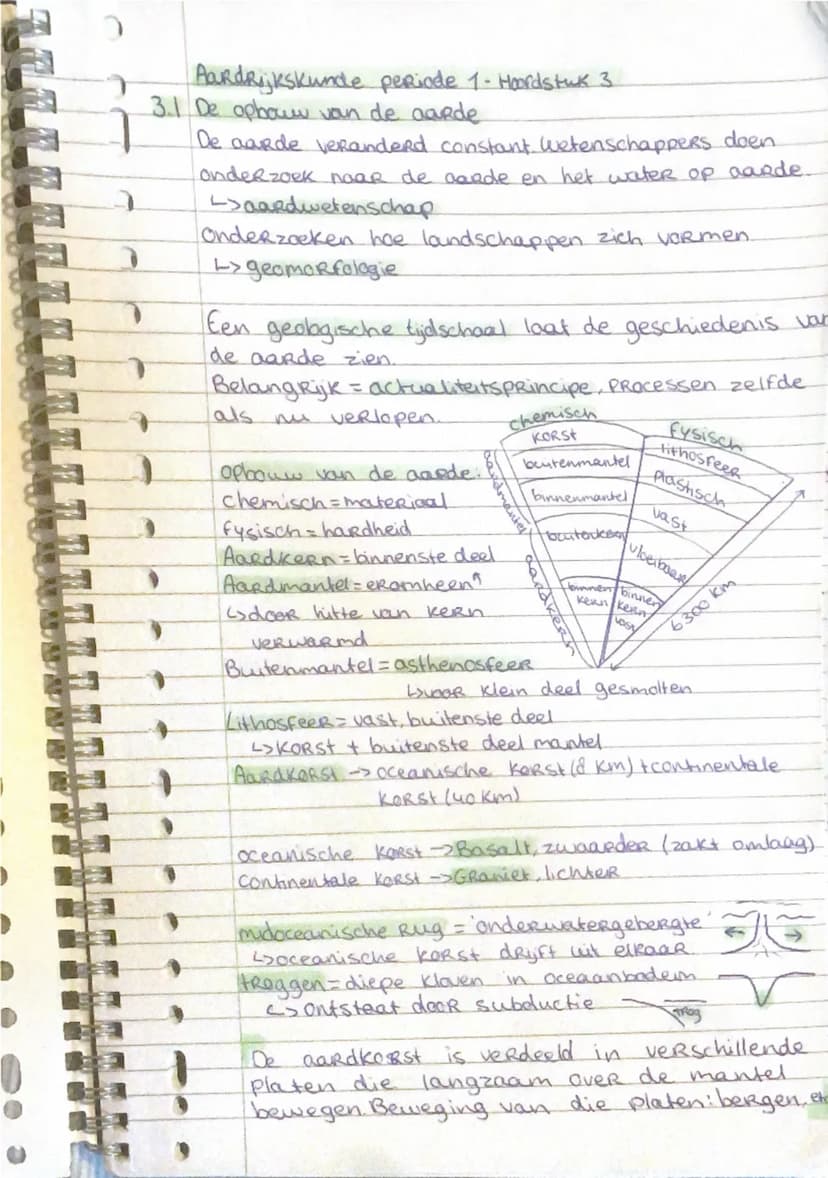 Aardrijkskunde periode 1 - Hoofdstuk 3
3.1 De opbouw van de aarde
De aarde veranderd constant. Wetenschappers doen
onderzoek naar de aarde en het water op aarde.
↳aardwetenschap
Onderzoeken hoe landschappen zich vormen
↳geomorfologie
Een geologische tijdschaal laat de geschiedenis van
de aarde zien.
Belangrijk = actualiteitsprincipe, processen zelfde
als nu verlopen.
chemisch
fysisch
korst
lithosfeer
buitenmantel
plastisch
binnenmantel
vast
buitenkern
vloeibaar
binnen
kern
binnen
kern
vast
aardmantel
aardkern
6300 km
opbouw van de aarde:
chemisch = materiaal
fysisch = hardheid
Aardkern = binnenste deel
Aardmantel = eromheen
↳door hitte van kern
verwarmd
Buitenmantel = asthenosfeer
↳voor klein deel gesmolten
Lithosfeer = vast, buitenste deel
↳korst + buitenste deel mantel
Aardkorst → oceanische korst (8 km) + continentale
korst (40 km)
oceanische korst → Basalt, zwaarder (zakt omlaag)
continentale korst → Graniet, lichter
midoceanische rug = 'onderwatergebergte'
↳oceanische korst drijft uit elkaar
troggen = diepe kloven in oceaanbodem
↳ontstaat door subductie
trog
De aardkorst is verdeeld in verschillende
platen die langzaam over de mantel
bewegen. Beweging van die platen: bergen, etc